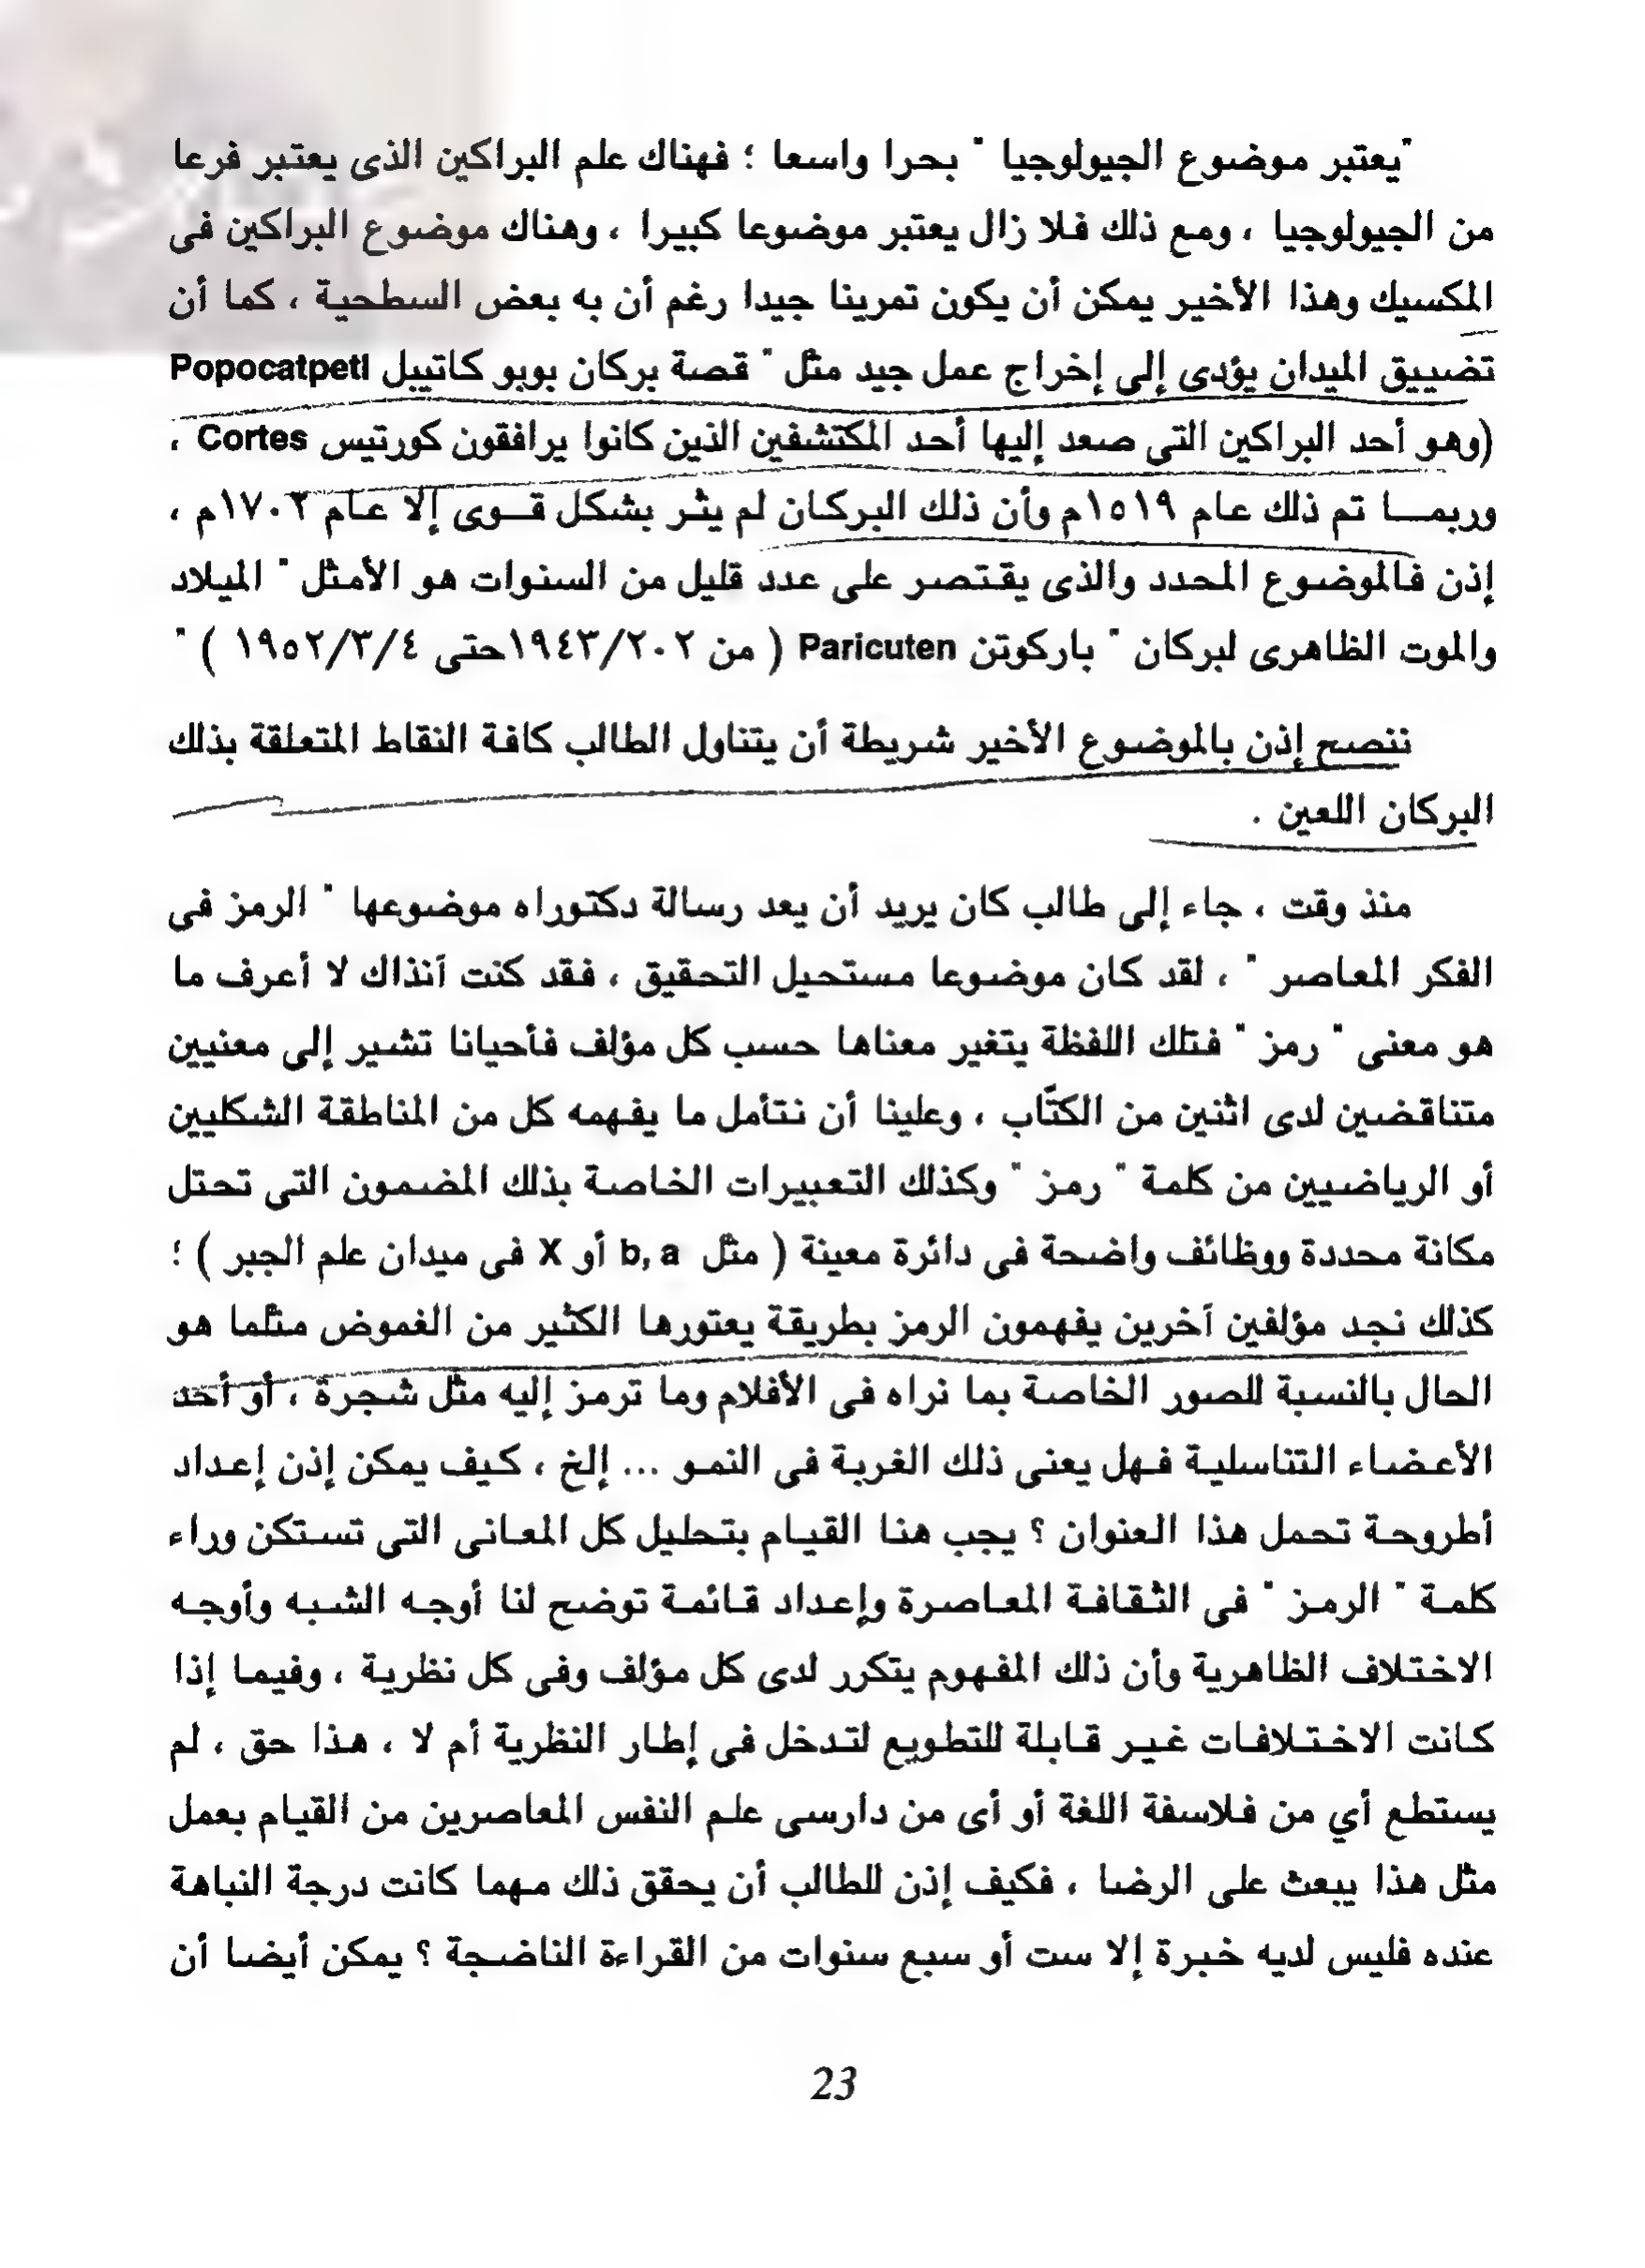 "يعتبر موضوع الجيولوجيا " بحرا واسعا ؛ فهناك علم البراكين الذى يعتبر فرعا
من الجيولوجيا ، ومع ذلك فلا زال يعتبر موضوعا كبيرا ، وهناك موضوع البراكين فى
المكسيك وهذا الأخير يمكن أن يكون تمرينا جيدا رغم أن به بعض السطحية ، كما أن
تضييق الميدان يؤدى إلى إخراج عمل جيد مثل " قصة بركان بوبو كاتيبل Popocatpetl
(وهو أحد البراكين التى صعد إليها أحد المكتشفين الذين كانوا يرافقون كورتيس Cortes ،
وربمــا تم ذلك عام ١٥١٩م وأن ذلك البركان لم يثر بشكل قــوى إلا عام ١٧٠٢م ،
إذن فالموضوع المحدد والذى يقتصر على عدد قليل من السنوات هو الأمثل " الميلاد
والموت الظاهرى لبركان " باركوتن Paricuten ( من ١٩٤٣/٢٠٢حتى ١٩٥٢/٣/٤ ) "
ننصح إذن بالموضوع الأخير شريطة أن يتناول الطالب كافة النقاط المتعلقة بذلك
البركان اللعين .
منذ وقت ، جاء إلى طالب كان يريد أن يعد رسالة دكتوراه موضوعها " الرمز فى
الفكر المعاصر " ، لقد كان موضوعا مستحيل التحقيق ، فقد كنت آنذاك لا أعرف ما
هو معنى " رمز " فتلك اللفظة يتغير معناها حسب كل مؤلف فأحيانا تشير إلى معنيين
متناقضين لدى اثنين من الكتّاب ، وعلينا أن نتأمل ما يفهمه كل من المناطقة الشكليين
أو الرياضيين من كلمة " رمز " وكذلك التعبيرات الخاصة بذلك المضمون التى تحتل
مكانة محددة ووظائف واضحة فى دائرة معينة ( مثل b, a أو X فى ميدان علم الجبر ) ؛
كذلك نجد مؤلفين آخرين يفهمون الرمز بطريقة يعتورها الكثير من الغموض مثلما هو
الحال بالنسبة للصور الخاصة بما نراه فى الأفلام وما ترمز إليه مثل شجرة ، أو أحد
الأعضاء التناسلية فهل يعنى ذلك الغربة فى النمو ... إلخ ، كيف يمكن إذن إعداد
أطروحة تحمل هذا العنوان ؟ يجب هنا القيام بتحليل كل المعانى التى تستكن وراء
كلمة " الرمز " فى الثقافة المعاصرة وإعداد قائمة توضح لنا أوجه الشبه وأوجه
الاختلاف الظاهرية وأن ذلك المفهوم يتكرر لدى كل مؤلف وفى كل نظرية ، وفيما إذا
كانت الاختلافات غير قابلة للتطويع لتدخل فى إطار النظرية أم لا ، هذا حق ، لم
يستطع أي من فلاسفة اللغة أو أى من دارسى علم النفس المعاصرين من القيام بعمل
مثل هذا يبعث على الرضا ، فكيف إذن للطالب أن يحقق ذلك مهما كانت درجة النباهة
عنده فليس لديه خبرة إلا ست أو سبع سنوات من القراءة الناضجة ؟ يمكن أيضا أن
23